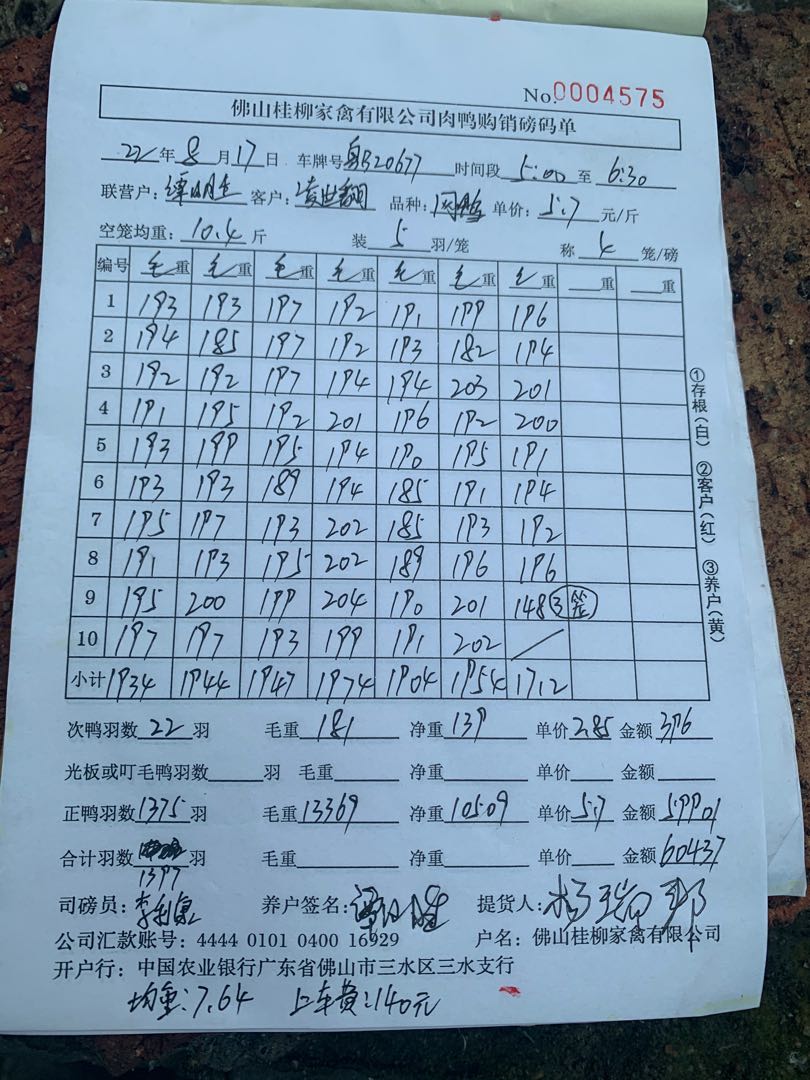 No.0004575
佛山桂柳家禽有限公司肉鸭购销磅码单
22年8月17日 车牌号 20677 时间段 5:00 至 6:30
联营户: 客户: 品种: 单价:5.7元/斤
空笼均重:10.4斤 装5羽/笼 称4笼/磅
编号 毛重 毛重 毛重 毛重 毛重 毛重 毛重 重 重
1 193 193 197 192 191 199 196
2 194 185 197 192 193 182 194
3 192 192 197 194 194 203 201
4 191 195 192 201 196 192 200
5 193 199 195 194 190 195 191
6 193 193 189 194 185 191 194
7 195 197 193 202 185 193 192
8 191 193 195 202 189 196 196
9 195 200 199 204 190 201 148 3笼
10 197 197 193 199 191 202 /
小计 1934 1944 1947 1974 1904 1954 1712
次鸭羽数22羽 毛重181 净重139 单价2.85 金额396
光板或叮毛鸭羽数 羽 毛重 净重 单价 金额
正鸭羽数1375羽 毛重13369 净重10509 单价5.7 金额59901
合计羽数 羽 毛重 净重 单价 金额60437
1397
司磅员: 养户签名: 提货人:杨瑞邦
公司汇款账号:4444 0101 0400 16929 户名:佛山桂柳家禽有限公司
开户行:中国农业银行广东省佛山市三水区三水支行
均重:7.64 上车费:140元
①存根(白) ②客户(红) ③养户(黄)